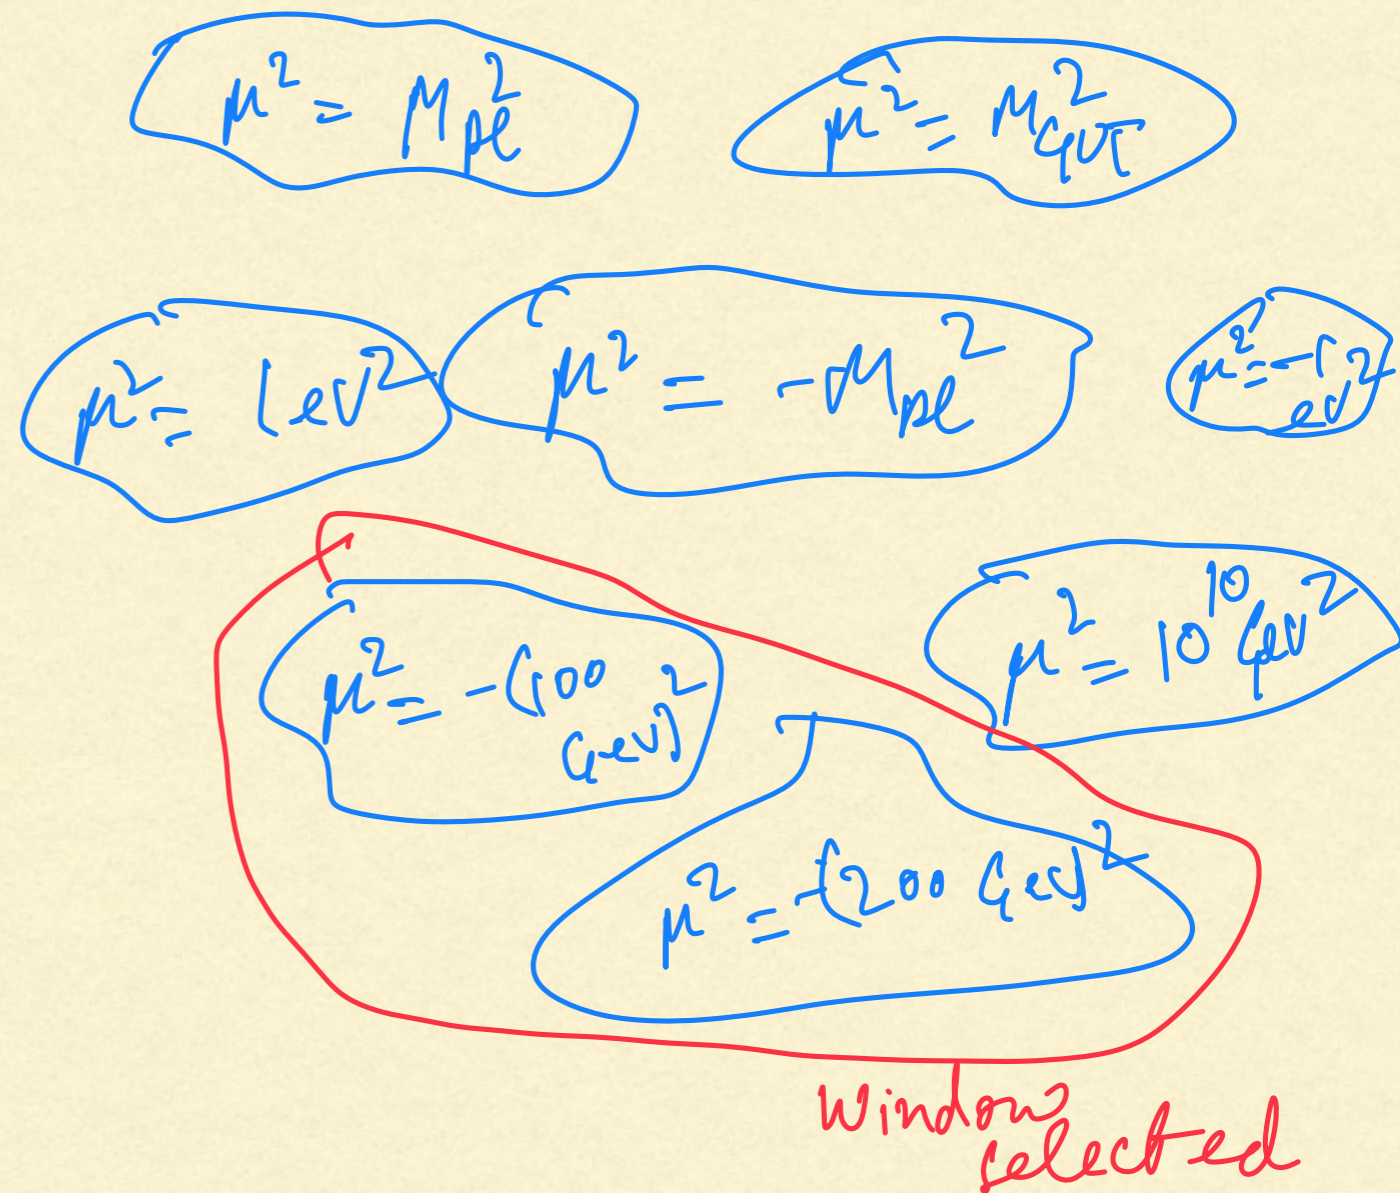 μ² = M_pl²
μ² = M_GUT²
μ² = 1 eV²
μ² = -M_pl²
μ² = -1
eV²
μ² = -(100
GeV)²
μ² = 10¹⁰ GeV²
μ² = -(200 GeV)²
Window
selected